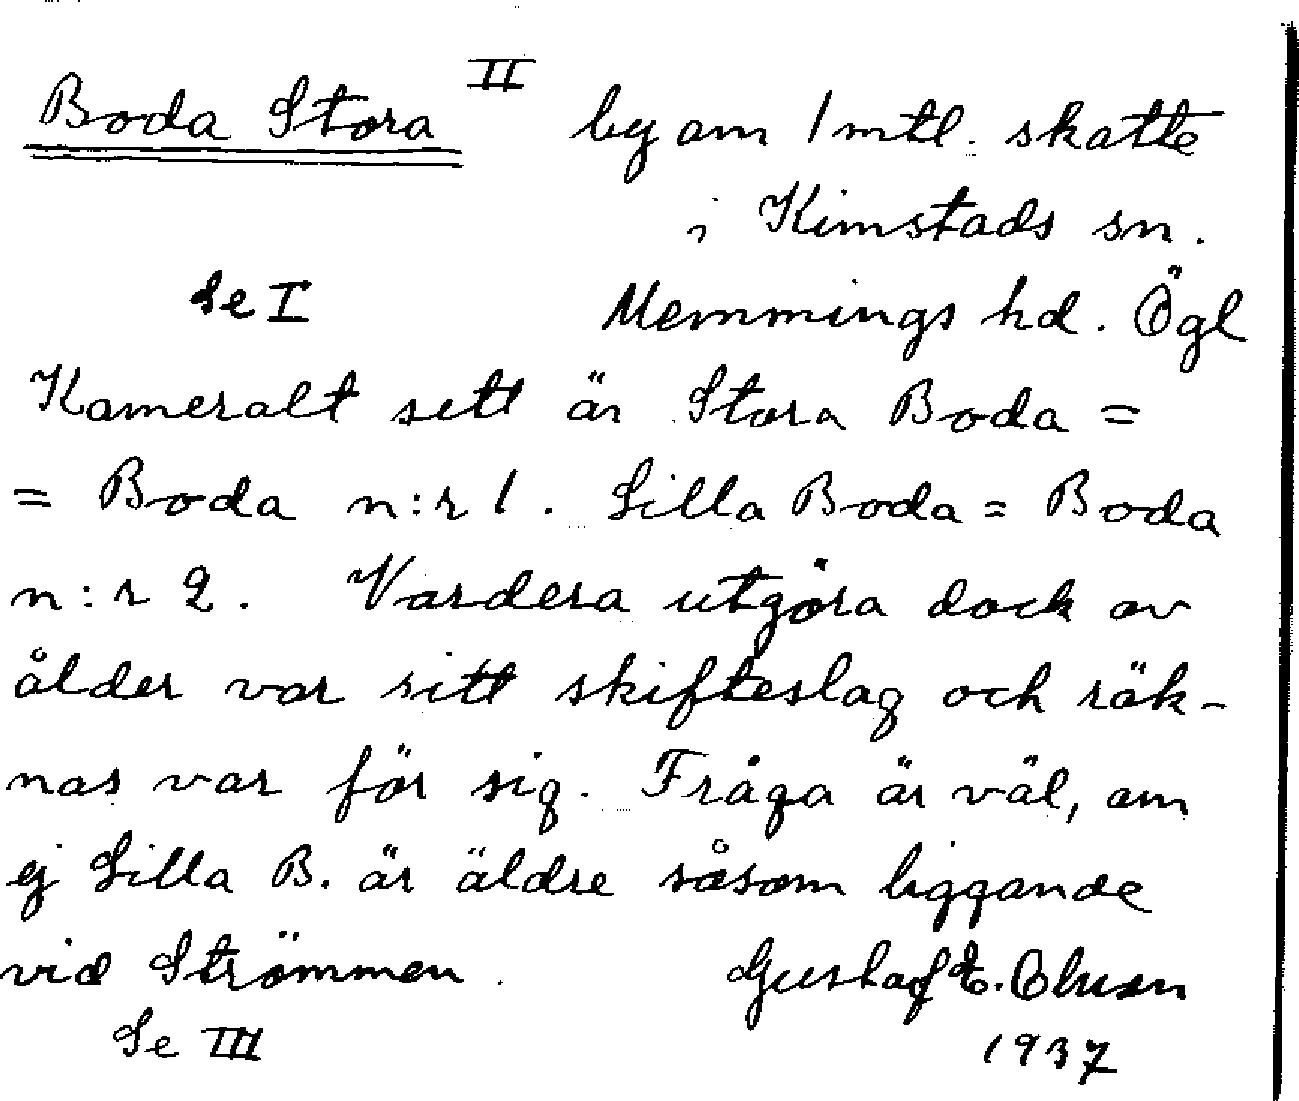 Boda Stora II by om 1 mtl. skatte
i Kimstads sn.
Se I Memmings hd. Ögl
Kameralt sett är Stora Boda =
= Boda n:r 1. Lilla Boda = Boda
n:r 2. Vardera utgöra dock av
ålder var sitt skifteslag och räk-
nas var för sig. Fråga är väl, om
ej Lilla B. är äldre såsom liggande
vid Strömmen. Gustaf E.
Se III 1937